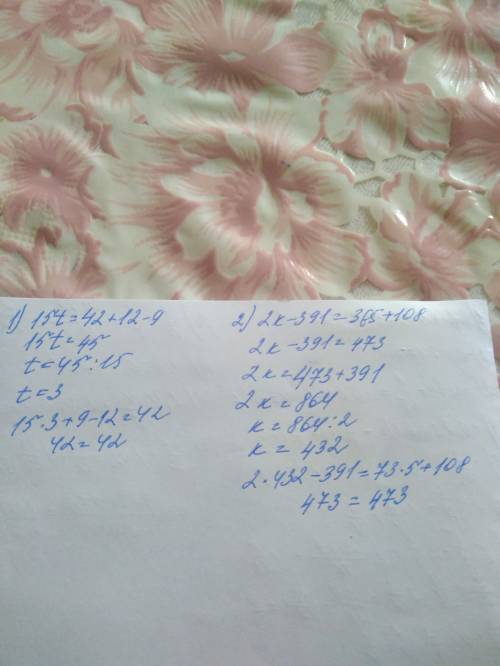 1) 15t=42+12-9
15t=45
t=45:15
t=3
15·3+9-12=42
42=42
2) 2к-391=365+108
2к-391=473
2к=473+391
2к=864
к=864:2
к=432
2·432-391=73·5+108
473=473